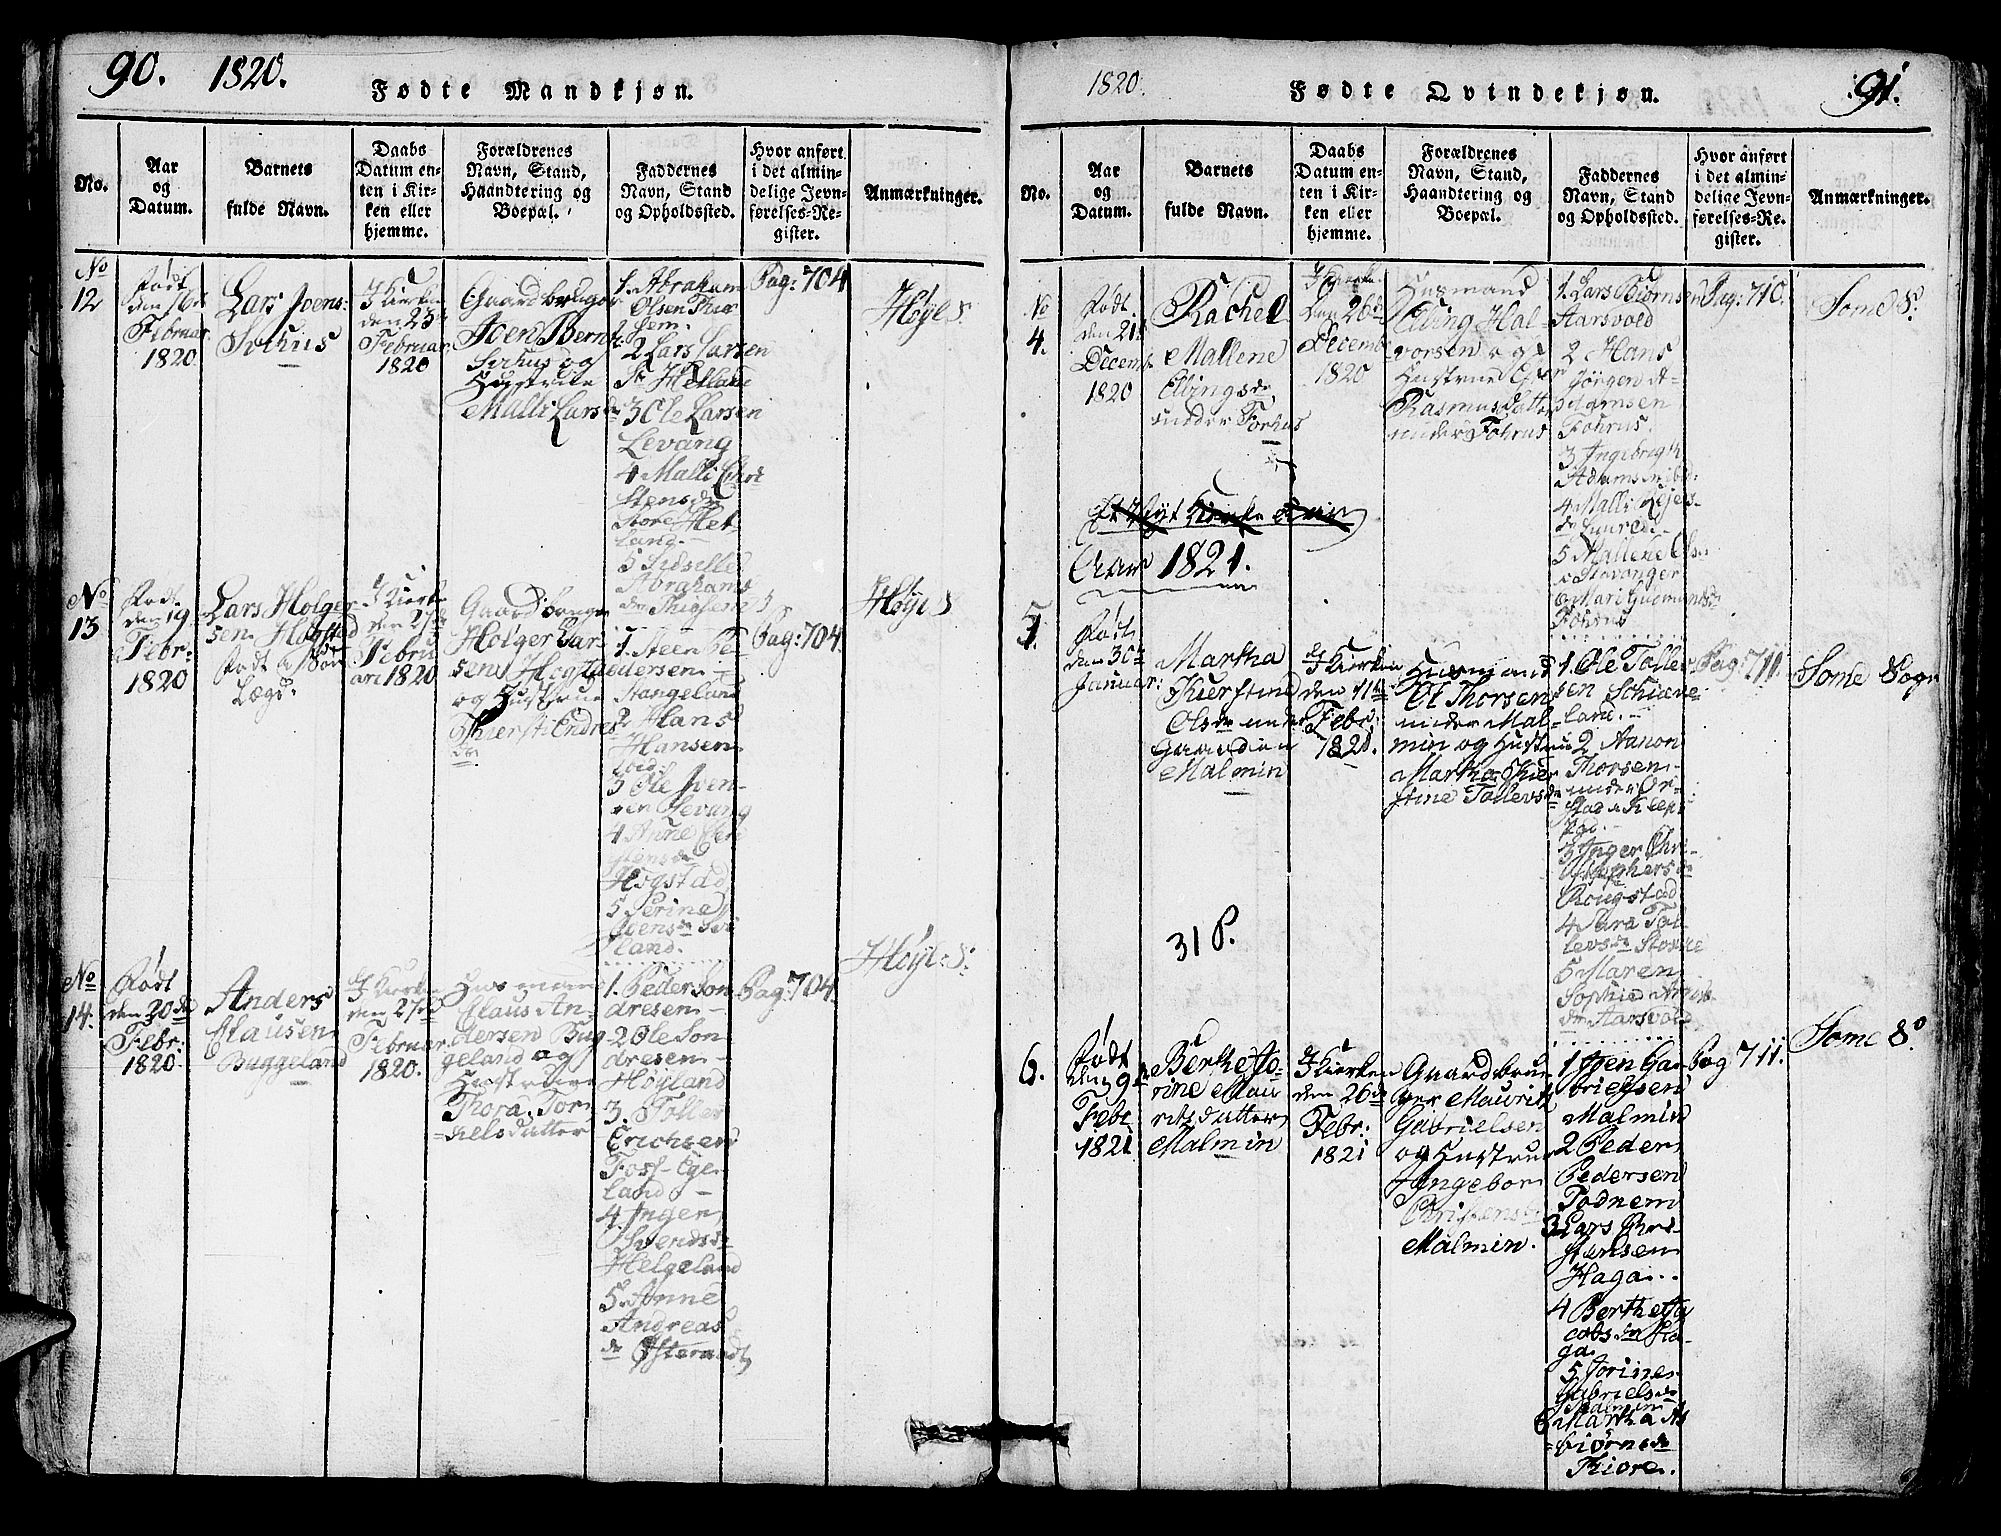 90. 1820. Fødte Mandkjøn.
No.
Aar
og
Datum.
Barnets
fulde Navn.
Daabs
Datum en-
ten i Kir-
ken eller
hjemme.
Forældrenes
Navn, Stand,
Haandtering og
Boepæl.
Faddernes
Navn, Stand
og Opholdssted.
Hvor anført
i det almin-
delige Jevn-
førelses-Re-
gister.
Anmærkninger.
No
12
Født
den 16de
Februar
1820
Lars Joens:
den 23de
Februar
1820
Gaardbruger
Joen Bern
og
Hustrue
Malli Larsd
1. Abraham
Olsen
2 Lars Larsen
St Hetland
3 Ole Larsen
Levang
4 Malli Chri
stensdr
Store Het
land.
5 Sidselle
Abrahams
Pag: 704
Høyl S:
No
13
Født
den 19
Febr:
1820
Lars Holger
sen Hogsted
Født a Søn
den 27de
Febru
ari 1820
Holger Lar
sen
og Hustrue
Endres
dr
1. Steen Pe
dersen
Stangeland
2 Hans
Hansen
3 Ole Joen
sen Levang
4 Anne Chri
stensdr
Hogstad
5 Serine
Joensdr
land.
Pag: 704.
Høyl S
No
14.
Født
den 20de
Febr:
1820.
Anders
Clausen
Buggeland
den 27de
Februar
1820.
Husmand
Claus An
dersen Bug
geland og
Hustrue
Thora Tor
kelsdatter
1. Peder Son
dresen
2 Ole Son
dresen
Høyland
3. Toller
Erichsen
Foss Ege
land
4. Inger
Svendsdr
Helgeland
5 Anne
Andreas
dr
Pag: 704.
Høyl: S:
1820. Fødte Qvindekjøn. 91.
No.
Aar
og
Datum.
Barnets
fulde Navn.
Daabs
Datum en-
ten i Kir-
ken eller
hjemme.
Forældrenes
Navn, Stand,
Haandtering og
Boepæl.
Faddernes
Navn, Stand
og Opholdssted.
Hvor anført
i det almin-
delige Jevn-
førelses-Re-
gister.
Anmærkninger.
No
4.
Født
den 21de
Decemb
1820
Rachel
Mallene
Elvingsdr
under Forhus
den 26de
Decemb
1820
Husmand
Elving Hal
vorsen og
Hustrue
Rasmusdatter
under Fohrus
1. Lars Biørnsen
Aarsvold
2 Hans
Jørgen A-
damsen
Fohrus.
3 Ingebrigt
Adamsen
4 Malli
5 Mallene
Stavanger
6 Mari Gudmundsdr
Fohrus
Pag: 710.
Some S:
Aar 1821.
5
Født
den 30te
Januar:
Martha
Kierstine
Olsdr under
Gaarden
Malmin
Kierken
den 11te
Febr:
1821.
Husmand
Ol Thorsen
under Mal-
min og Hustrue
Martha Kier
stine Tollevsdr
1. Ole Tollev
sen Schiæve
land.
2 Aanon
Thorsen
under
3 Inger Chri-
stophersdr
Rougstad
4 Sara Tol
levsdr
5 Maren
Sophie
dr Aarsvold
Pag: 711.
Some Sogn
31 P.
6.
Født
den 9de
Febr
1821
Berthe Jo-
rine Mau
ritsdatter
Malmin
Kierken
den 26de
Febr:
1821
Gaardbru
ger Maurits
Gabrielsen
og Hustrue
Ingebor
Christensdr
Malmin.
1 Joen Ga
brielsen
Malmin
2 Peder
Pedersen
Todnem
3 Lars Chri
stensen
Haga.
4 Berthe Ja
cobsdr Ha-
ga
5 Jorine
Gabrielsdr
Malmin
6 Martha As
biørnsdr
Kiøre.
Pag 711.
Some S: